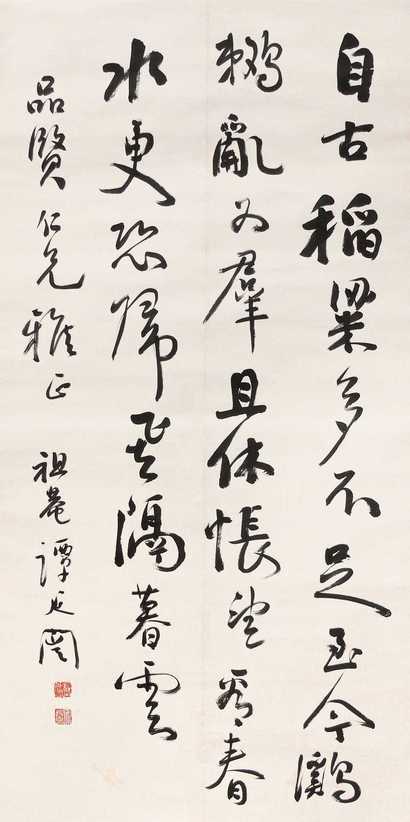 自古稻粱多不足至今鸂
鶒亂為羣且休悵望看春
水更恐歸飛隔暮雲
品賢仁兄雅正
祖菴譚延闓